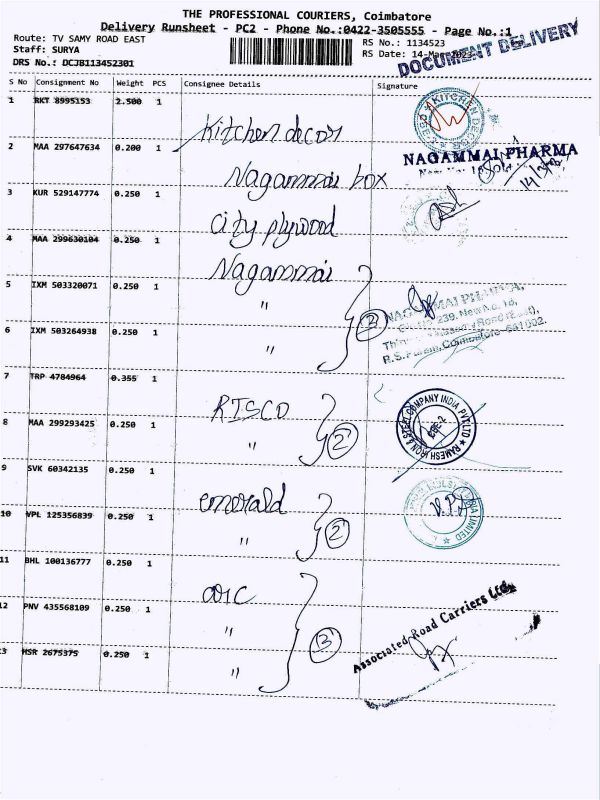 THE PROFESSIONAL COURIERS, Coimbatore
Delivery Runsheet - PC2 - Phone No.:0422-3505555 - Page No.:1
Route: TV SAMY ROAD EAST
RS No.: 1134523
Staff: SURYA
RS Date: 14-Mar-2023
DRS No.: DCJB113452301
DOCUMENT DELIVERY
S No Consignment No Weight PCS Consignee Details Signature
1 RKT 8995153 2.500 1
Kitchen decor
KITCHEN
2 MAA 297647634 0.200 1
NAGAMMAI PHARMA
Nagammai box
3 KUR 529147774 0.250 1
City plywood
4 MAA 299630104 0.250 1
Nagammai
5 IXM 503320071 0.250 1
"
NAGAMMAI PHARMA,
239, New No. 16,
3
6 IXM 503264938 0.250 1
"
R.S. Puram, Coimbatore-641002.
7 TRP 4784964 0.355 1
RISCO
RAMESH IRON & STEEL COMPANY INDIA PVT LTD
8 MAA 299293425 0.250 1
"
2
9 SVK 60342135 0.250 1
emerald
INDIA LIMITED
10 VPL 125356839 0.250 1
"
2
11 BHL 100136777 0.250 1
arc
Associated Road Carriers Ltd.
12 PNV 435568109 0.250 1
"
3
13 HSR 2675375 0.250 1
"